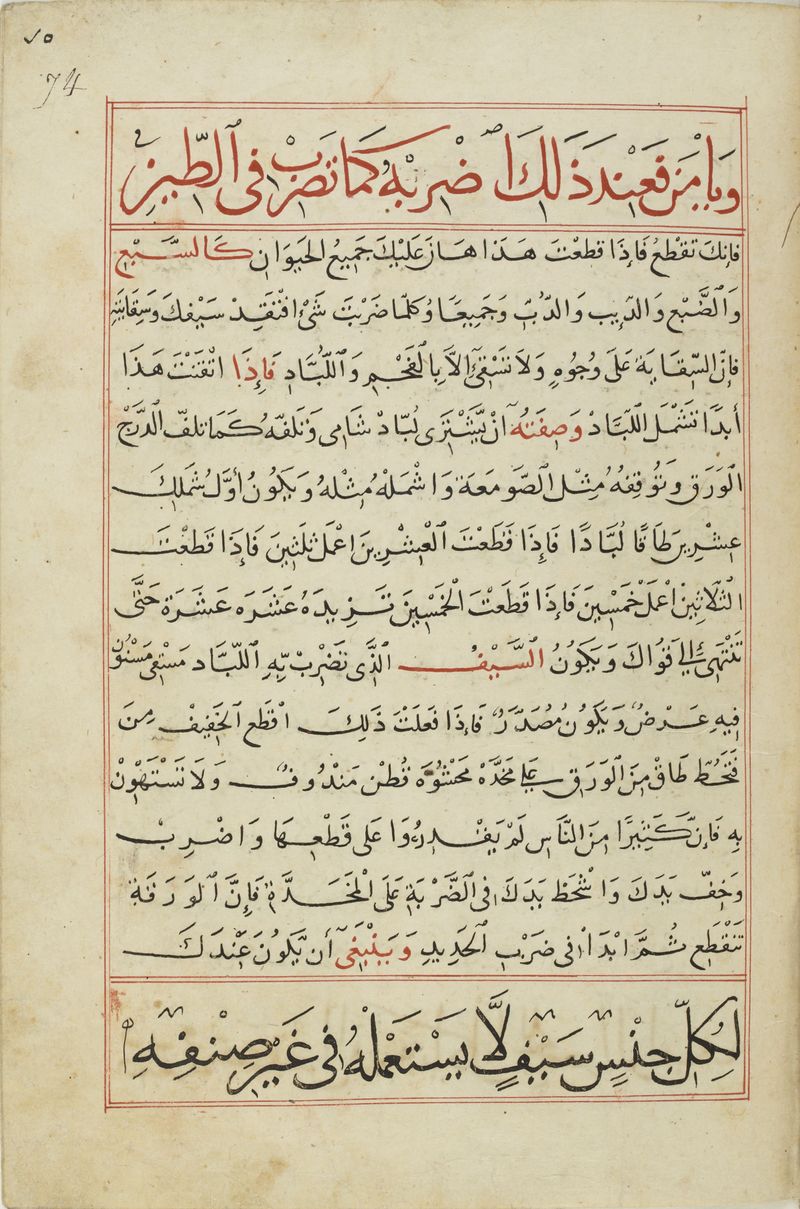 ٧٥
74
ويامن فعند ذلك اضربه كما تضرب في الطين
فانك تقطع فاذا قطعت هذا هان عليك جميع الحيوان كالسبع
والضبع والذيب والدب وجميعا وكلما ضربت شيء افتقد سيفك وسقايته
فإن السقاية على وجوه ولا تسقى الا بالفحم واللباد فإذا اتقنت هذا
أبدا تشمل اللباد وصفته ان يشترى لباد شامي وتلفه كما تلف الدرج
الورق وتوقفه مثل الصومعة واشمله مثله ويكون أول شملك
عشرين طاقا لبادا فإذا قطعت العشرين اعمل ثلثين فاذا قطعت
الثلاثين اعمل خمسين فاذا قطعت الخمسين تزيده عشره عشرة حتى
تنتهى الي قواك ويكون السيف الذى تضرب به اللباد مسقى مسنون
فيه عرض ويكون مصدر فاذا فعلت ذلك اقطع الخفيف من
فتحط طاق من الورق علي مخده محشوة قطن مندوف ولا تستهون
به فان كثيرا من الناس لم يقدروا على قطعها واضرب
وخف يدك واشحط يدك في الضربة على المخدة فإن الورقة
تنقطع ثم ابدا في ضرب الحديد وينبغي أن يكون عندك
لكل جنس سيف لا يستعمله في غير صنفه